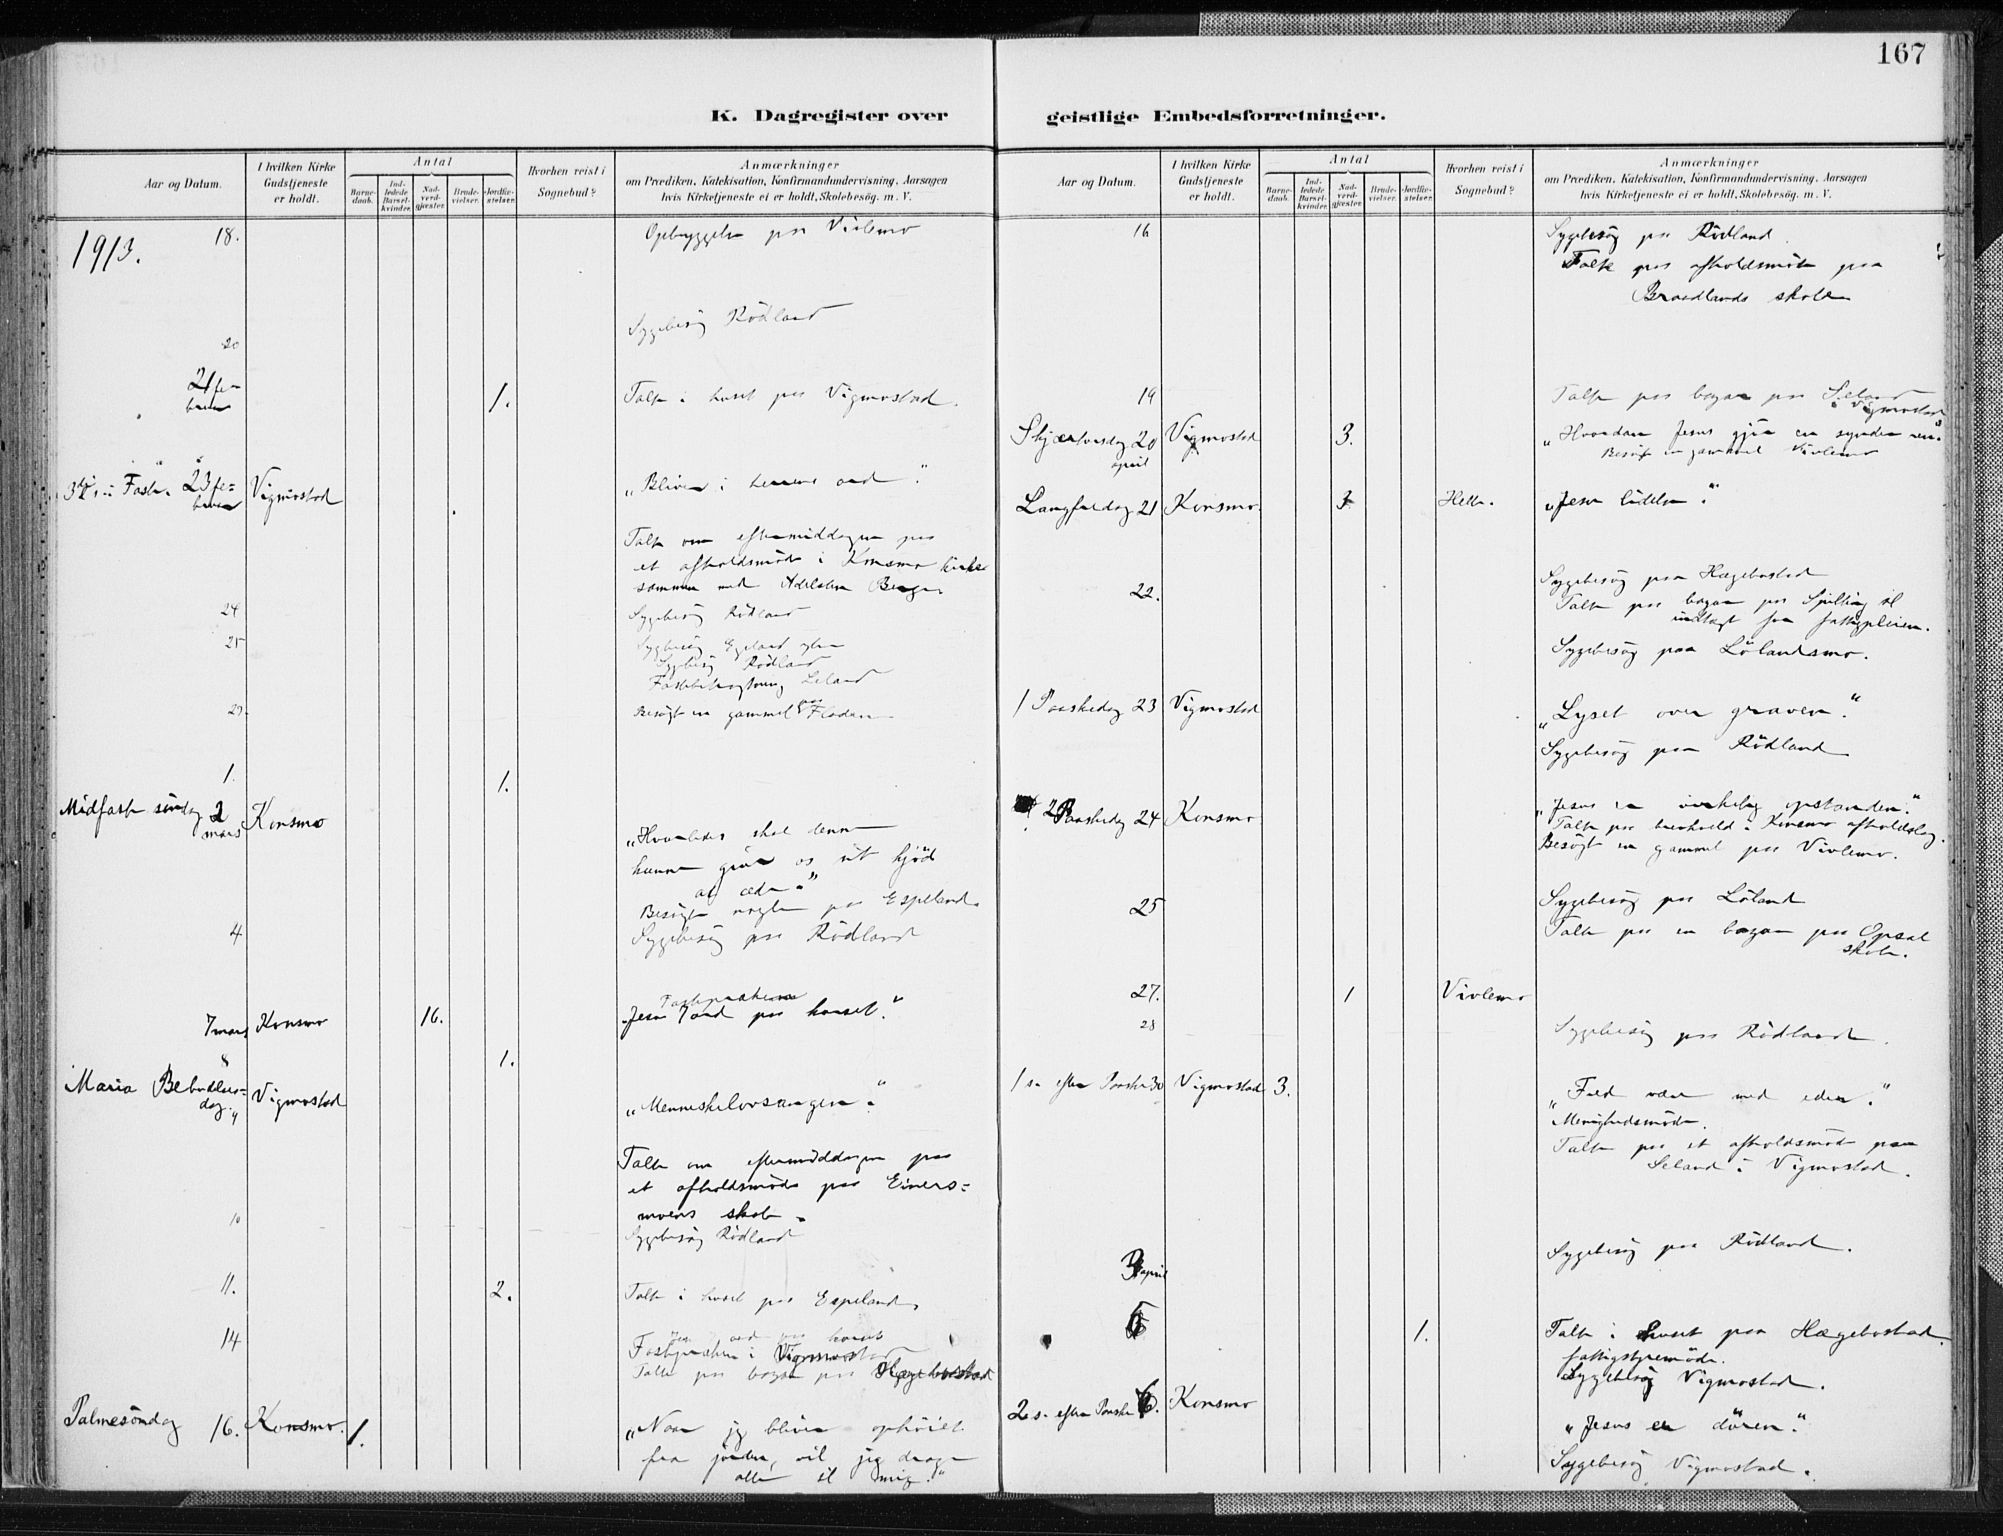 167
K. Dagregister over geistlige Embedsforretninger.
Aar og Datum.
I hvilken Kirke Gudstjeneste er holdt.
Antal
Barnedaab.
Indledede Barselkvinder.
Nadverdgjester.
Brudevielser.
Jordfæstelser.
Hvorhen reist i Sognebud?
Anmærkninger
om Prædiken, Katekisation, Konfirmandundervisning, Aarsagen
hvis Kirketjeneste ei er holdt, Skolebesøg. m. V.
1913.
18.
Opbyggelse paa Vivlemo
20
Sygebesög Rödland
21 februar
1.
Talte i huset paa Vigmostad.
3die s. i Faste. 23 februar
Vigmostad
„Bliver i hennes ord“.
Talte om eftermiddagen paa
et afholdsmöde i Konsmo kirke
sammen med Berge.
24
Sygebesög Rödland
25
Sygebesög Egeland
Sygebesög Rödland
Fastebetragtning Leland
27.
Besögt en gammel paa Fladen
1.
1.
Midfaste söndag 2 mars
Konsmo
„Hvorledes skal denne
kunne give os sit kjöd
at æde.“
Besögt nogle paa Espeland.
4
Sygebesög paa Rödland
7 mars
Konsmo
16.
Fastepræken
„Jesu 7 ord paa korset.“
8
1.
Maria Bebudelsesdag. 9
Vigmostad
„Menneskelovsangen.“
Talte om eftermiddagen paa
et afholdsmöde paa Einers=
moens skole.
10
Sygebesög Rödland
11.
2.
Talte i huset paa Espeland.
14
ord paa korset
Fastepræken i Vigmostad
Talte paa bazar paa Hægebostad
Palmesöndag 16.
Konsmo.
1.
„Naar jeg bliver ophöiet
fra jorden, vil jeg drage
alle til mig.“
Aar og Datum.
I hvilken Kirke Gudstjeneste er holdt.
Antal
Barnedaab.
Indledede Barselkvinder.
Nadverdgjester.
Brudevielser.
Jordfæstelser.
Hvorhen reist i Sognebud?
Anmærkninger
om Prædiken, Katekisation, Konfirmandundervisning, Aarsagen
hvis Kirketjeneste ei er holdt, Skolebesøg. m. V.
16
Sygebesög paa Rödland.
Talte paa afholdsmöte paa
Braadlands skole
19
Talte paa bazar paa Seland
i Vigmostad
Skjærtorsdag 20 april
Vigmostad
3.
„Hvordan Jesus gjör en synder ren.“
Besögt en gammel Vivlemo
Langfredag 21
Konsmo.
3
Helle.
„Jesu lidelse.“
22.
Sygebesög paa Hægebostad
Talte paa bazar paa Spilling til
indtægt for fattigpleien.
Sygebesög paa Lölandsmo.
1 Paaskedag 23
Vigmostad
„Lyset over graven.“
Sygebesög paa Rödland
2 Paaskedag 24
Konsmo
„Jesus er virkelig opstanden.“
Talte paa i Konsmo afholdslag.
Besögt en gammel paa Vivlemo.
25
Sygebesög paa Löland
Talte paa en bazar paa Opsal
skole.
27.
1
Vivlemo
28
Sygebesög paa Rödland.
1 s. efter Paaske 30
Vigmostad
3.
„Fred være med eder.“
Menighedsmöde.
Talte paa et afholdsmöde paa
Seland i Vigmostad.
3 april
Sygebesög paa Rödland.
5
1.
Talte i huset paa Hægebostad.
fattigstyremöde.
Sygebesög Vigmostad.
2 s. efter Paaske 6.
Konsmo
„Jesus er dören.“
Sygebesög Vigmostad.